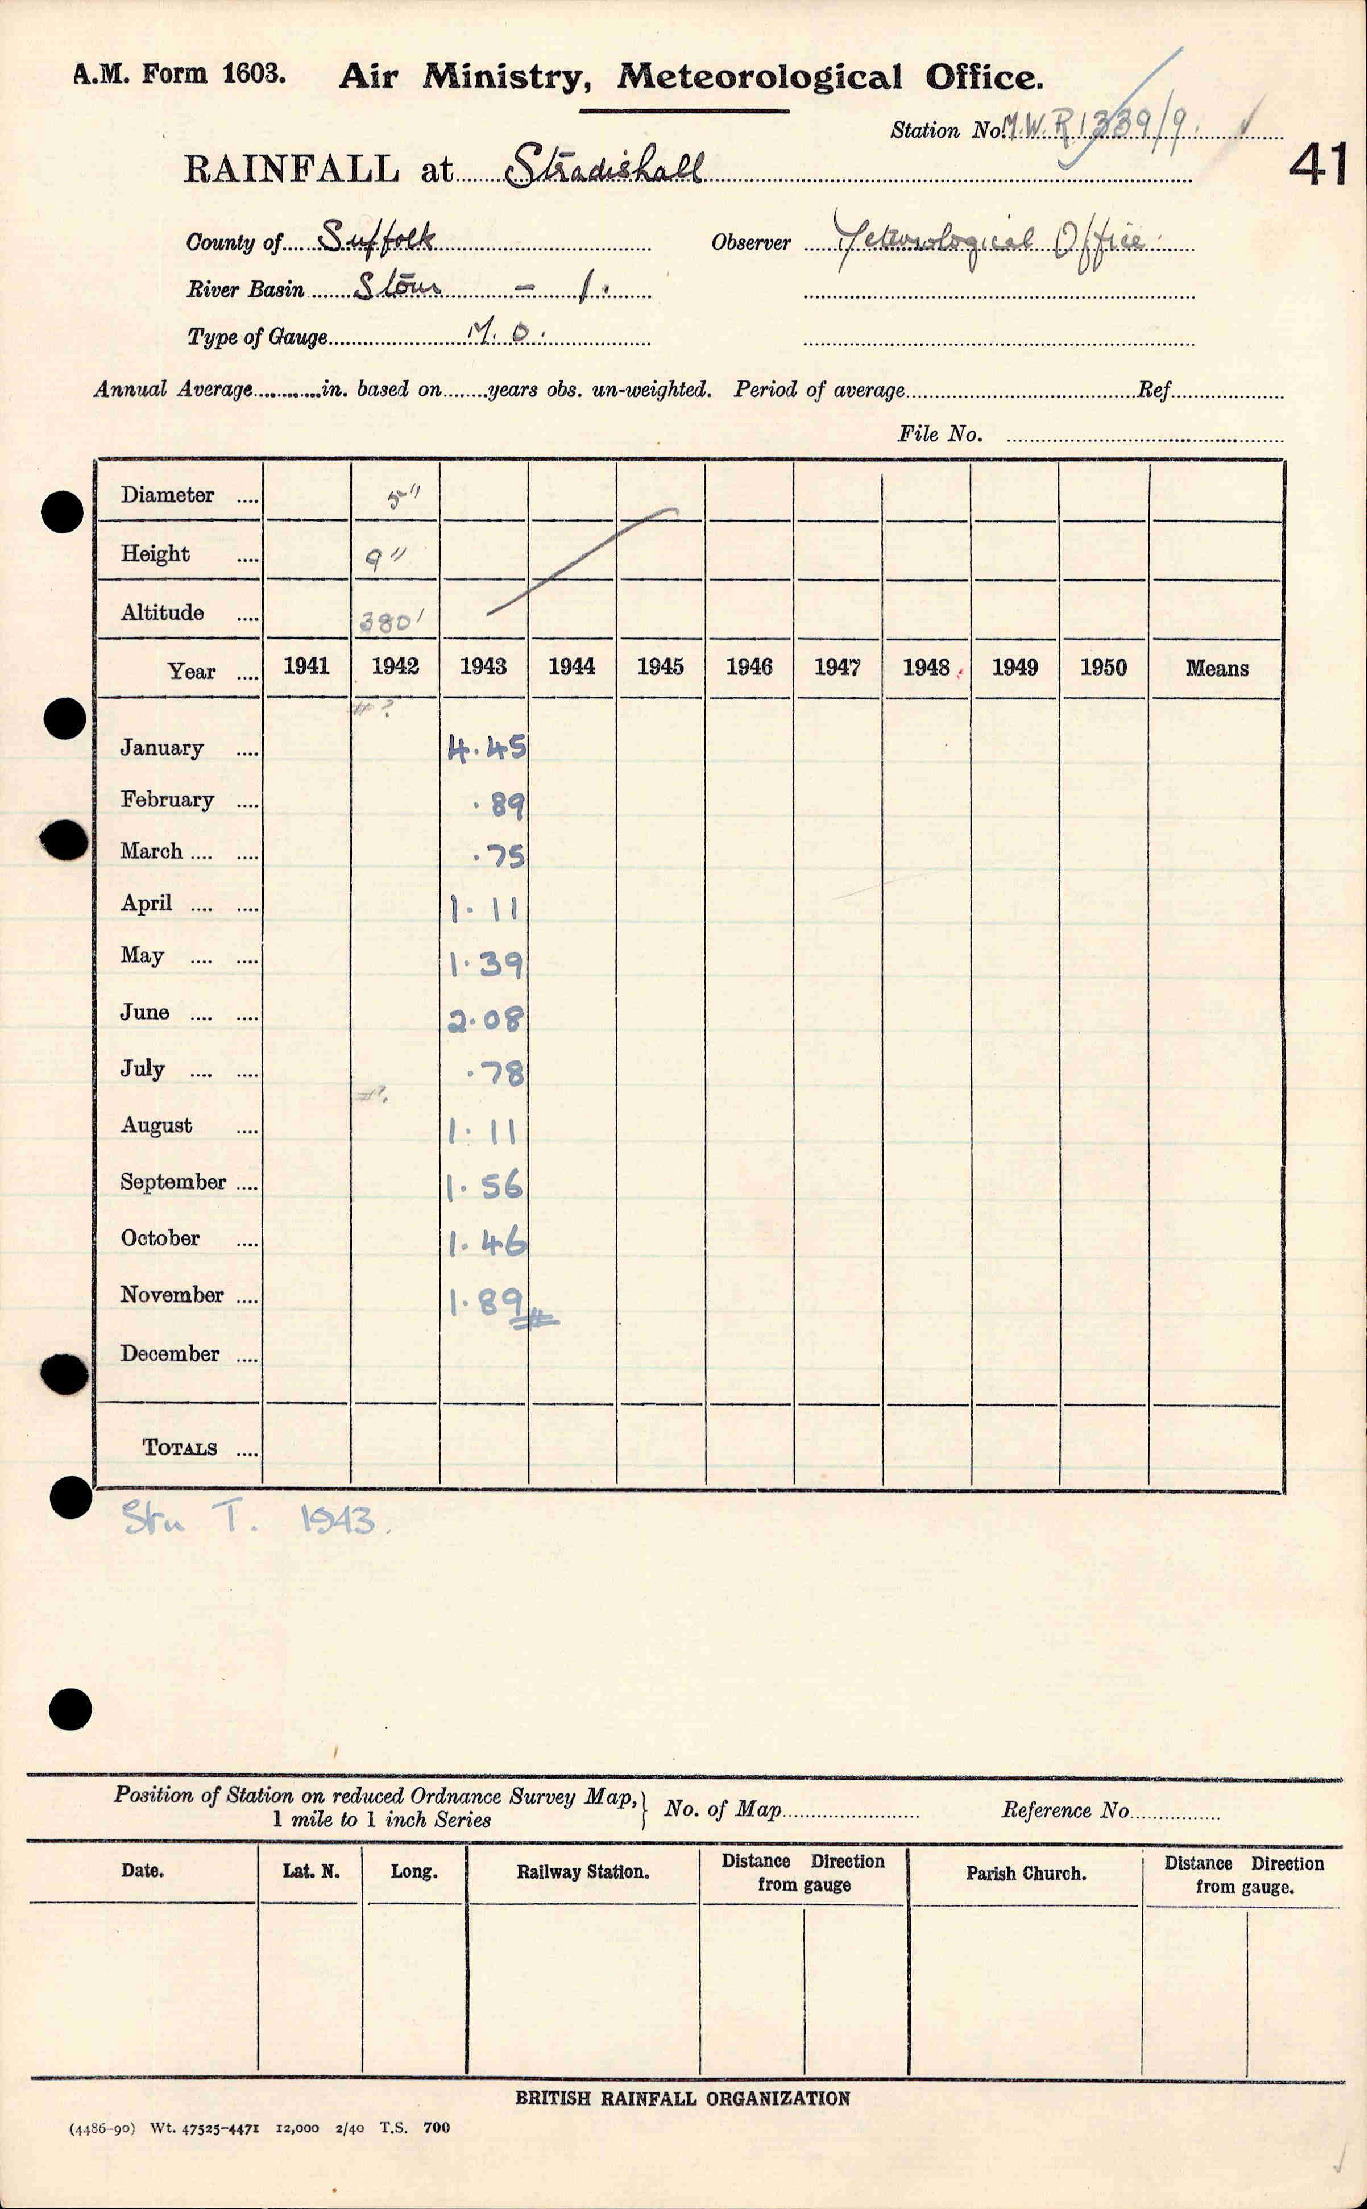 A.M. Form 1603. Air Ministry, Meteorological Office.
Station No. M.W.R. 1339/9.
41
RAINFALL at Stradishall
County of Suffolk Observer Meteorological Office.
River Basin Stour – 1.
Type of Gauge M.O.
Annual Average in. based on years obs. un-weighted. Period of average Ref.
File No.
Diameter 5"
Height 9"
Altitude 380'
Year 1941 1942 1943 1944 1945 1946 1947 1948 1949 1950 Means
#?
January 4.45
February .89
March .75
April 1.11
May 1.39
June 2.08
July .78
#?
August 1.11
September 1.56
October 1.46
November 1.89 #
December
TOTALS
Stn T. 1943.
Position of Station on reduced Ordnance Survey Map, 1 mile to 1 inch Series } No. of Map Reference No.
Date. Lat. N. Long. Railway Station. Distance Direction from gauge Parish Church. Distance Direction from gauge.
BRITISH RAINFALL ORGANIZATION
(4486-90) Wt. 47525-4471 12,000 2/40 T.S. 700